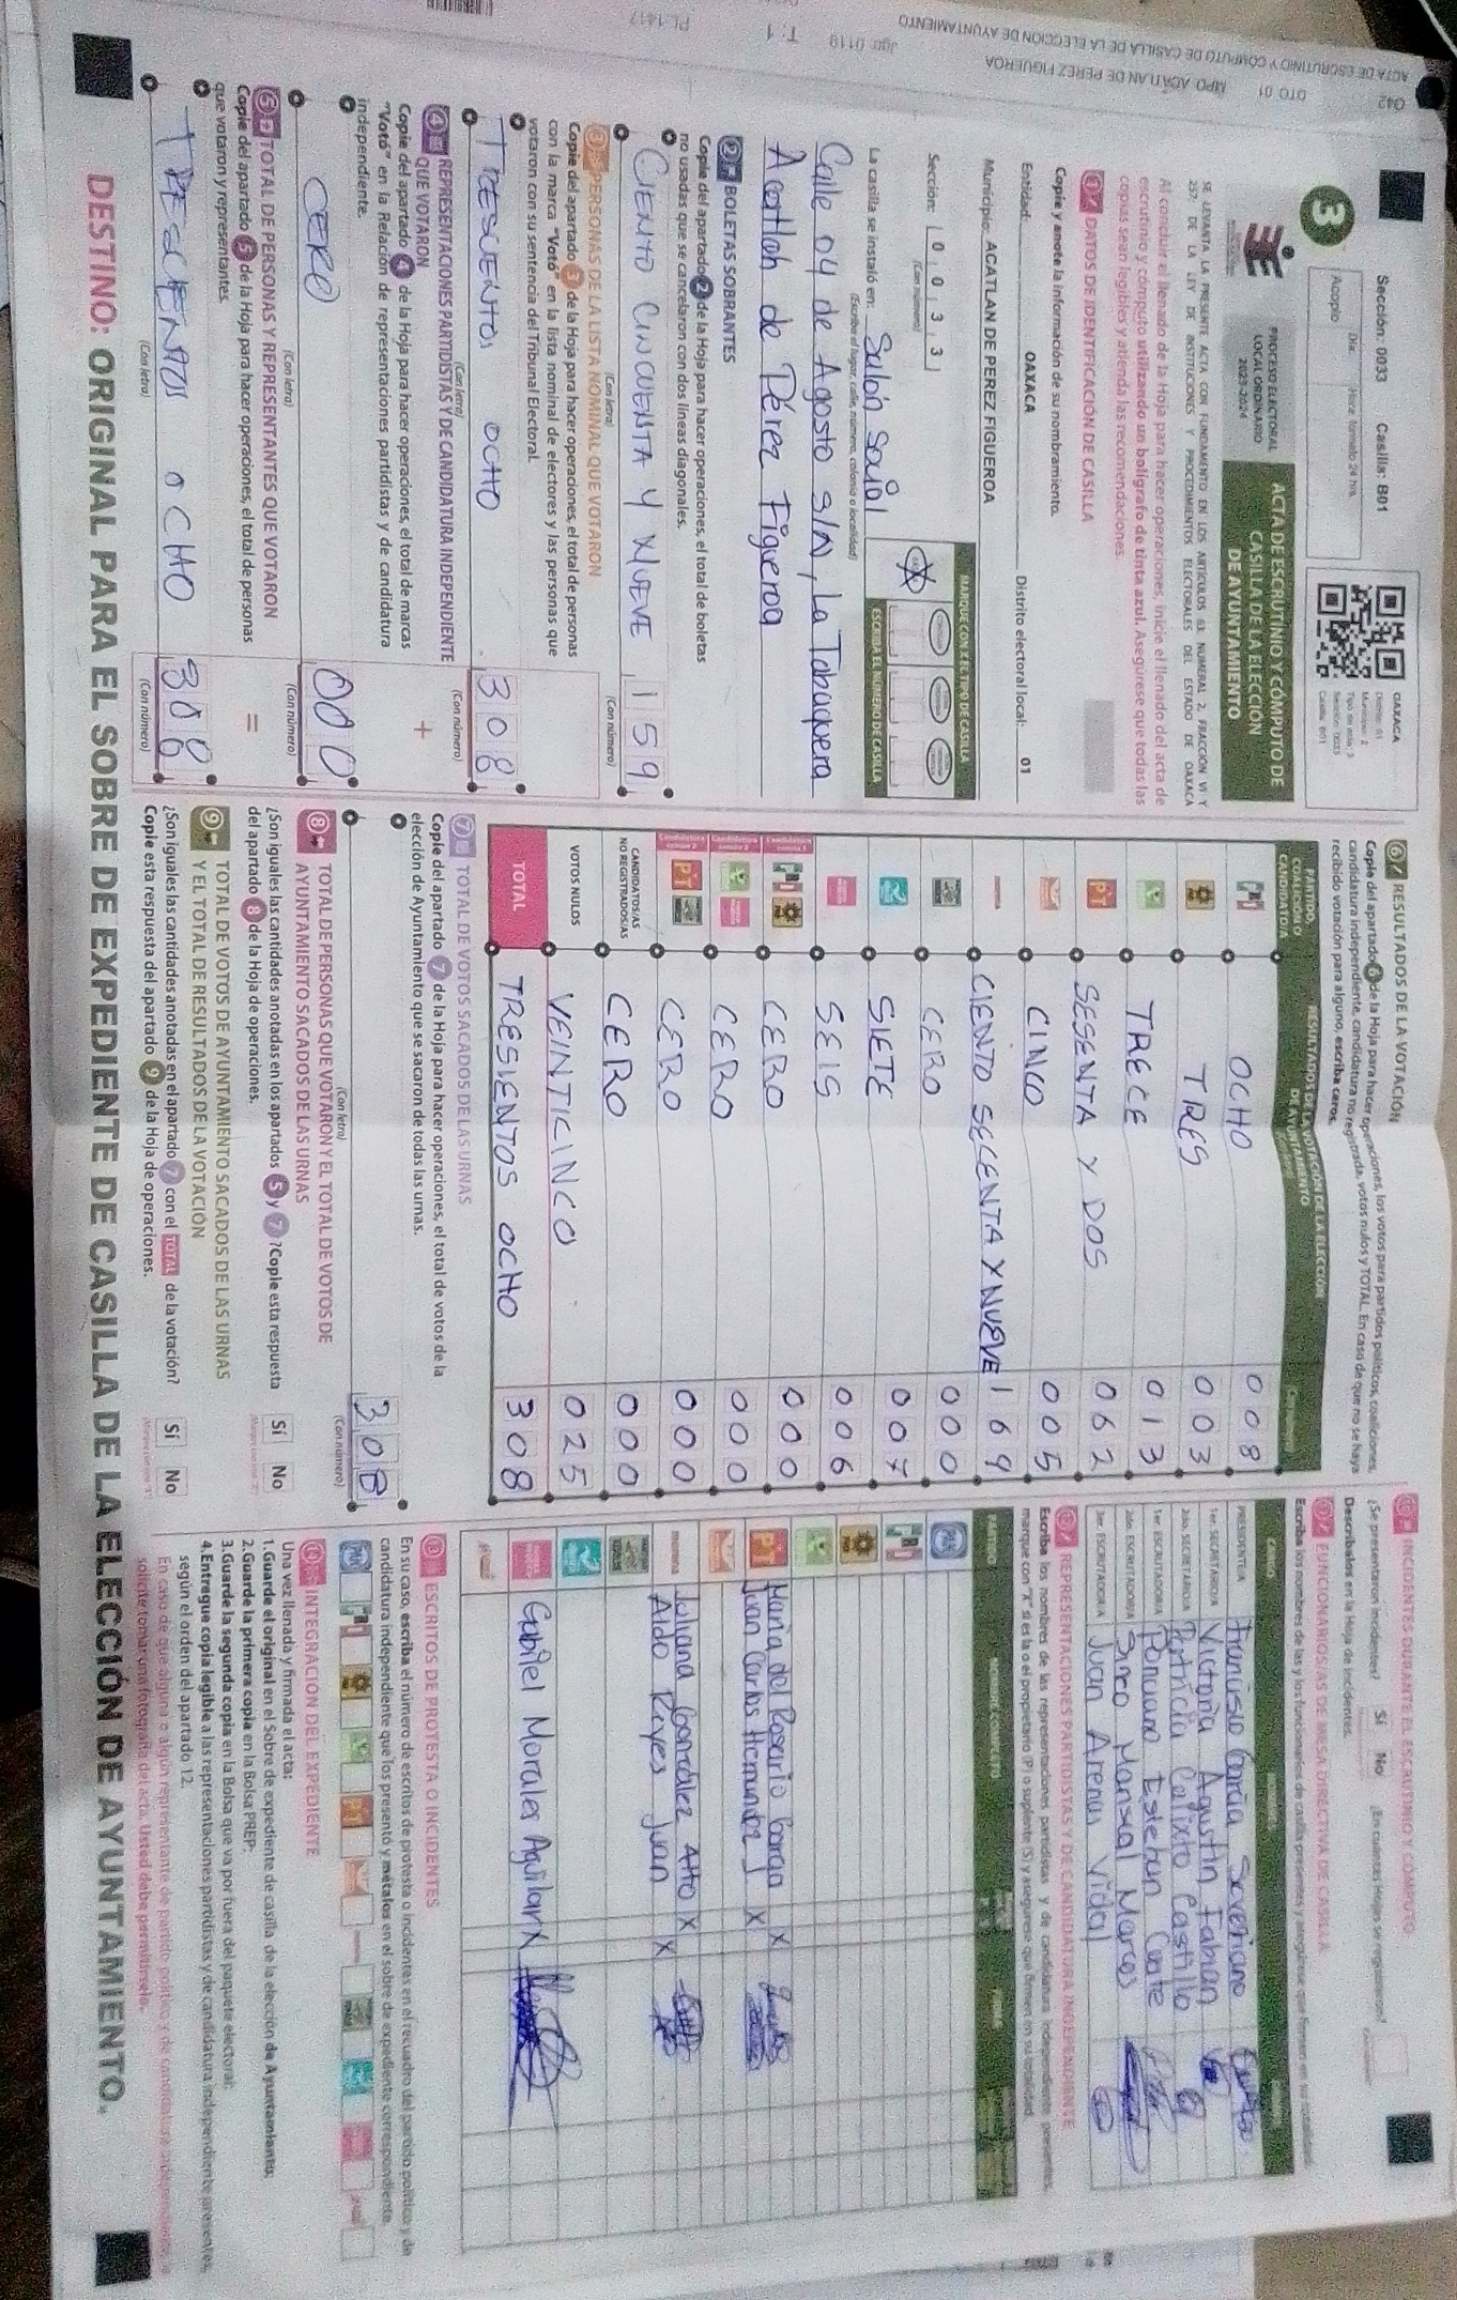 042
ACTA DE ESCRUTINIO Y CÓMPUTO DE CASILLA DE LA ELECCIÓN DE AYUNTAMIENTO
DTO 01 MPO. ACATLAN DE PEREZ FIGUEROA
Jgo: 0119
T: 1
PL 1417
Sección: 0033 Casilla: B01
Día: Hora: formato 24 hrs.
Acopio
3
OAXACA
PROCESO ELECTORAL
LOCAL ORDINARIO
2023-2024
ACTA DE ESCRUTINIO Y CÓMPUTO DE
CASILLA DE LA ELECCIÓN
DE AYUNTAMIENTO
Al concluir el llenado de la Hoja para hacer operaciones, inicie el llenado del acta de
escrutinio y cómputo utilizando un bolígrafo de tinta azul. Asegúrese que todas las
copias sean legibles y atienda las recomendaciones.
1 DATOS DE IDENTIFICACIÓN DE CASILLA
Copie y anote la información de su nombramiento.
Entidad: OAXACA Distrito electoral local: 01
Municipio: ACATLAN DE PEREZ FIGUEROA
Sección: 0 0 3 3
(Con número)
MARQUE CON X EL TIPO DE CASILLA
ESCRIBA EL NÚMERO DE CASILLA
La casilla se instaló en: Salón Social
(Escriba el lugar, calle, número, colonia o localidad)
Calle 04 de Agosto S/N, La Tabaquera
Acatlan de Pérez Figueroa
2 BOLETAS SOBRANTES
Copie del apartado 2 de la Hoja para hacer operaciones, el total de boletas
no usadas que se cancelaron con dos líneas diagonales.
CIENTO CINCUENTA Y NUEVE 159
(Con letra) (Con número)
3 PERSONAS DE LA LISTA NOMINAL QUE VOTARON
Copie del apartado 3 de la Hoja para hacer operaciones, el total de personas
con la marca "Votó" en la lista nominal de electores y las personas que
votaron con su sentencia del Tribunal Electoral.
TRESCIENTOS OCHO 308
(Con letra) (Con número)
4 REPRESENTACIONES PARTIDISTAS Y DE CANDIDATURA INDEPENDIENTE
QUE VOTARON
+
Copie del apartado 4 de la Hoja para hacer operaciones, el total de marcas
"Votó" en la Relación de representaciones partidistas y de candidatura
independiente.
CERO 000
(Con letra) (Con número)
5 TOTAL DE PERSONAS Y REPRESENTANTES QUE VOTARON
=
Copie del apartado 5 de la Hoja para hacer operaciones, el total de personas
que votaron y representantes.
308
(Con letra) (Con número)
6 RESULTADOS DE LA VOTACIÓN
Copie del apartado 6 de la Hoja para hacer operaciones, los votos para partidos políticos, coaliciones,
candidatura independiente, candidatura no registrada, votos nulos y TOTAL. En caso de que no se haya
recibido votación para alguno, escriba ceros.
PARTIDO, COALICIÓN O CANDIDATO/A
RESULTADOS DE LA VOTACIÓN DE LA ELECCIÓN DE AYUNTAMIENTO
OCHO 008
PRD TRES 003
TRECE 013
PT SESENTA Y DOS 062
CINCO 005
CIENTO SECENTA Y NUEVE 169
CERO 000
SIETE 007
SEIS 006
CERO 000
CERO 000
PT CERO 000
CANDIDATOS/AS NO REGISTRADOS/AS CERO 000
VOTOS NULOS VEINTICINCO 025
TOTAL TRESIENTOS OCHO 308
7 TOTAL DE VOTOS SACADOS DE LAS URNAS
Copie del apartado 7 de la Hoja para hacer operaciones, el total de votos de la
elección de Ayuntamiento que se sacaron de todas las urnas.
308
(Con letra) (Con número)
8 TOTAL DE PERSONAS QUE VOTARON Y EL TOTAL DE VOTOS DE
AYUNTAMIENTO SACADOS DE LAS URNAS
¿Son iguales las cantidades anotadas en los apartados 5 y 7? Copie esta respuesta
del apartado 8 de la Hoja de operaciones.
Sí No
9 TOTAL DE VOTOS DE AYUNTAMIENTO SACADOS DE LAS URNAS
Y EL TOTAL DE RESULTADOS DE LA VOTACIÓN
¿Son iguales las cantidades anotadas en el apartado 7 con el TOTAL de la votación?
Copie esta respuesta del apartado 9 de la Hoja de operaciones.
Sí No
INCIDENTES DURANTE EL ESCRUTINIO Y CÓMPUTO
¿Se presentaron incidentes? Sí No
Descríbalos en la Hoja de incidentes.
FUNCIONARIOS/AS DE MESA DIRECTIVA DE CASILLA
CARGO
PRESIDENTE/A García Severiano
1er. SECRETARIO/A Victoria Agustin Fabian
2do. SECRETARIO/A Patricia Calixto Castillo
1er. ESCRUTADOR/A Ponciano
2do. ESCRUTADOR/A
3er. ESCRUTADOR/A Juan Arenas Vidal
REPRESENTACIONES PARTIDISTAS Y DE CANDIDATURA INDEPENDIENTE
Escriba los nombres de las representaciones partidistas y de candidatura independiente presentes,
marque con "X" si es la o el propietario (P) o suplente (S) y asegúrese que firmen en su totalidad.
PARTIDO NOMBRE COMPLETO
PT María del Rosario X
Juan Carlos X
morena Juliana González X
Aldo Reyes Juan X
Gabriel Morales Aguilar X
ESCRITOS DE PROTESTA O INCIDENTES
En su caso, escriba el número de escritos de protesta o incidentes en el recuadro del partido político y de
candidatura independiente que los presentó y métalos en el sobre de expediente correspondiente.
INTEGRACIÓN DEL EXPEDIENTE
Una vez llenada y firmada el acta:
1.Guarde el original en el Sobre de expediente de casilla de la elección de Ayuntamiento;
2.Guarde la primera copia en la Bolsa PREP;
3.Guarde la segunda copia en la Bolsa que va por fuera del paquete electoral;
4.Entregue copia legible a las representaciones partidistas y de candidatura independiente presentes,
según el orden del apartado 12.
En caso de que alguna o algún representante de partido político y de candidatura independiente
solicite tomar una fotografía del acta. Usted debe permitírselo.
DESTINO: ORIGINAL PARA EL SOBRE DE EXPEDIENTE DE CASILLA DE LA ELECCIÓN DE AYUNTAMIENTO.